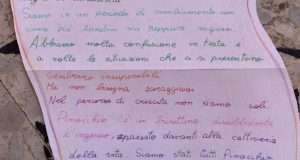 Siamo in un periodo di cambiamento, non
siamo più bambini ma neppure ragazzi.
Abbiamo molta confusione in testa e
a volte le situazioni che ci si presentano
sembrano insuperabili
Ma non bisogna scoraggiarsi
Nel percorso di crescita non siamo soli.
Pinocchio è un burattino disubbidiente
e ingenuo, spaesato davanti alla cattiveria
della vita. Siamo stati tutti Pinocchio